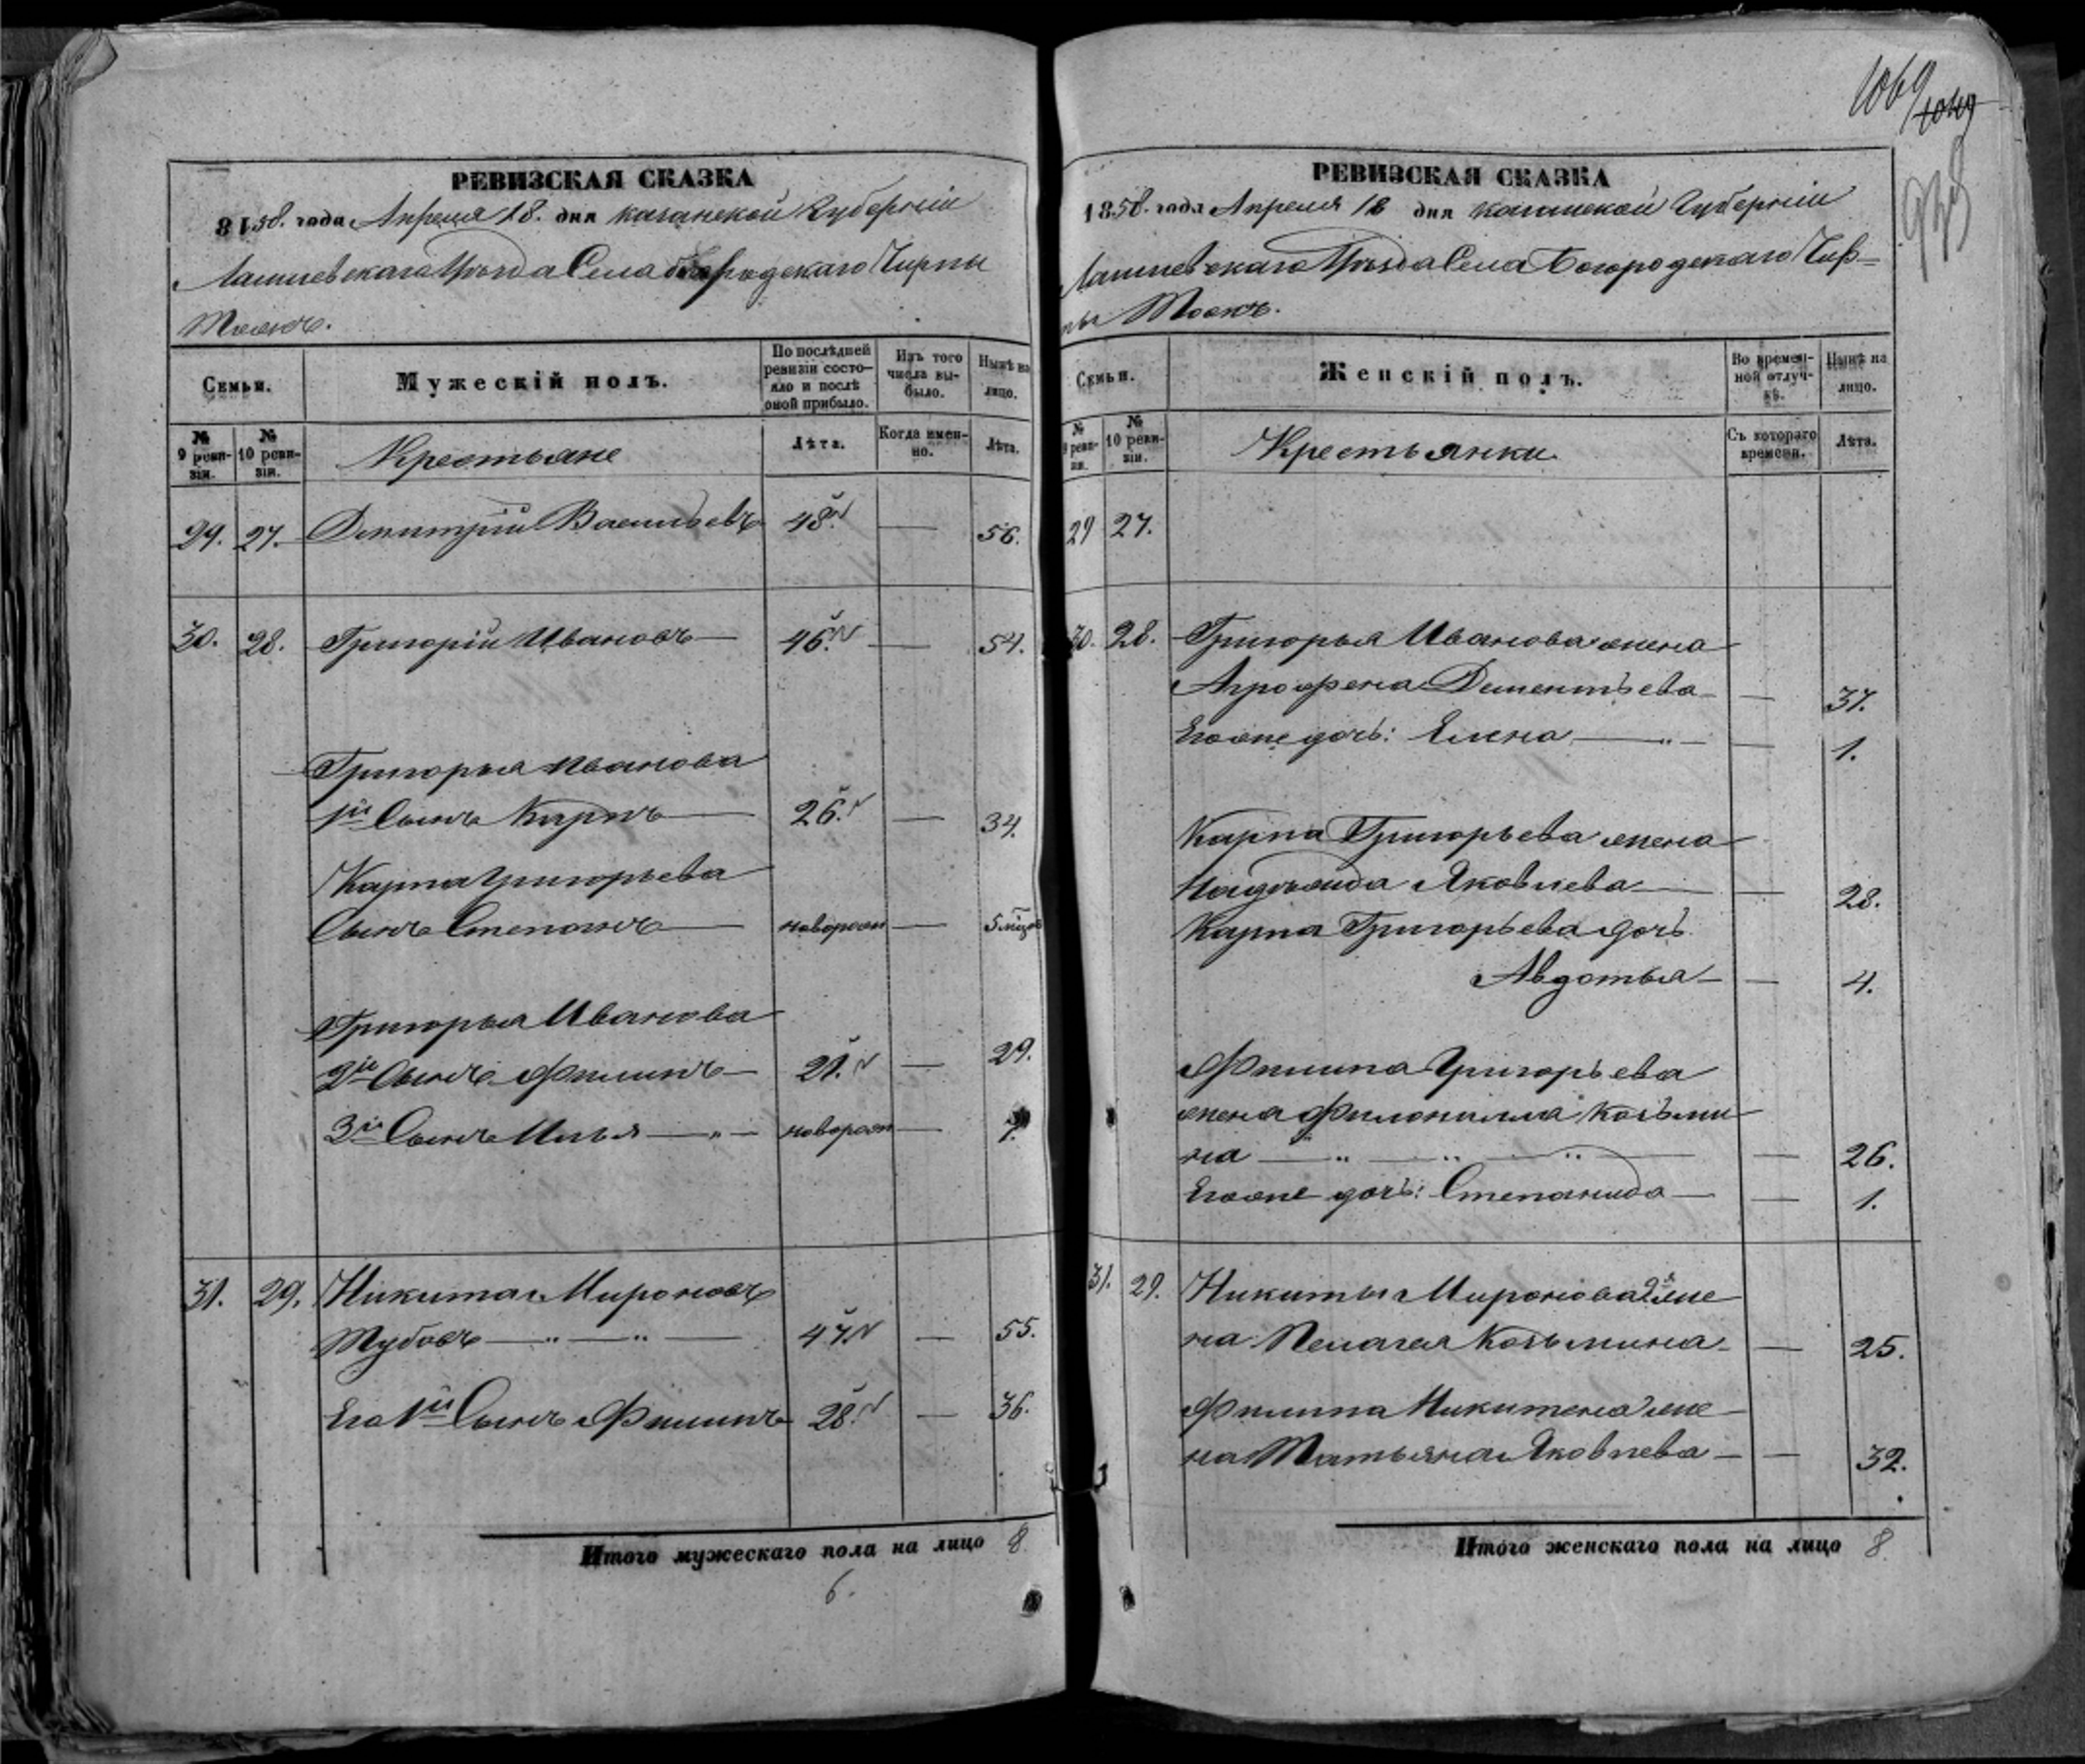 1069
РЕВИЗСКАЯ СКАЗКА
8158. года Апреля 18. дня казанской Губерніи
Лаишевскаго Уѣзда Села Богородскаго Чирпы
тожъ.
Семьи.
Мужескій полъ.
По послѣдней ревизіи состояло и послѣ оной прибыло.
Изъ того числа выбыло.
Нынѣ на лицо.
№ 9 ревизіи.
№ 10 ревизіи.
Крестьяне
Лѣта.
Когда именно.
Лѣта.
29. 27. Дмитрій Васильевъ 48. — 56.
30. 28. Григорій Ивановъ — 46. — 54.
Григорья Иванова
1й Сынъ Карпъ — 26. — 34.
Карпа Григорьева
Сынъ Степанъ — новорож — 5 мцов
Григорья Иванова
2й Сынъ Филипъ — 21. — 29.
3й Сынъ Илья — „ — новорож —
31. 29. Никита Мироновъ
Тубовъ — „ — „ — 47. — 55.
Его 1й Сынъ Филипъ 28. — 36.
Итого мужескаго пола на лицо 8
6.
РЕВИЗСКАЯ СКАЗКА
1858. года Апреля 18 дня казанской Губерніи
Лаишевскаго Уѣзда Села Богородскаго Чир-
пы Тожъ.
Семьи.
Женскій полъ.
Во временной отлучкѣ.
Нынѣ на лицо.
№ 9 ревизіи.
№ 10 ревизіи.
Крестьянки
Съ котораго времени.
Лѣта.
29 27.
30. 28. Григорья Иванова жена
Агрофена Дементьева — — 37.
Егоже дочь: Елена — „ — — 1.
Карпа Григорьева жена
Надѣжда Яковлева — — 28.
Карпа Григорьева дочь
Авдотья — — 4.
Филипа Григорьева
жена Филонилла Козьми
на — „ — „ — „ — — 26.
Егоже дочь: Степанида — — 1.
31. 29. Никиты Миронова 2я же
на Пелагея Козьмина — — 25.
Филипа Никитена жe
на Татьяна Яковлева — — 32.
Итого женскаго пола на лицо 8.